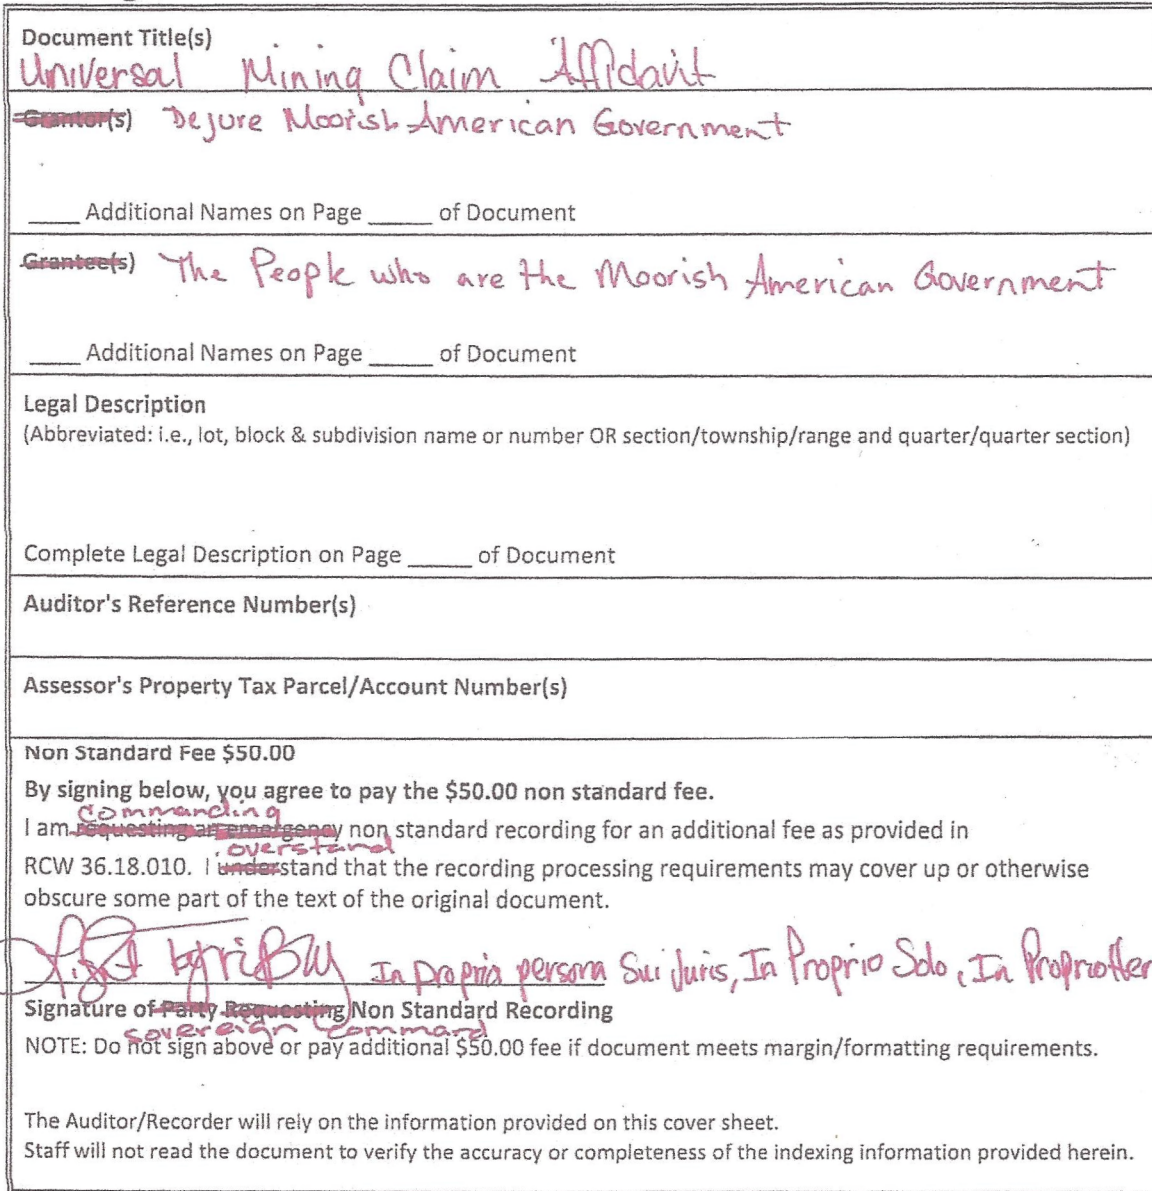 Document Title(s)
Universal Mining Claim Affidavit
Grantor(s) Dejure Moorish American Government
____ Additional Names on Page _____ of Document
Grantee(s) The People who are the Moorish American Government
____ Additional Names on Page _____ of Document
Legal Description
(Abbreviated: i.e., lot, block & subdivision name or number OR section/township/range and quarter/quarter section)
Complete Legal Description on Page _____ of Document
Auditor's Reference Number(s)
Assessor's Property Tax Parcel/Account Number(s)
Non Standard Fee $50.00
By signing below, you agree to pay the $50.00 non standard fee.
commanding
I am requesting an emergency non standard recording for an additional fee as provided in
overstand
RCW 36.18.010. I understand that the recording processing requirements may cover up or otherwise
obscure some part of the text of the original document.
In propria persona Sui Juris, In Proprio Solo, In Proprio Her
Signature of Party Requesting Non Standard Recording
sovereign command
NOTE: Do not sign above or pay additional $50.00 fee if document meets margin/formatting requirements.
The Auditor/Recorder will rely on the information provided on this cover sheet.
Staff will not read the document to verify the accuracy or completeness of the indexing information provided herein.